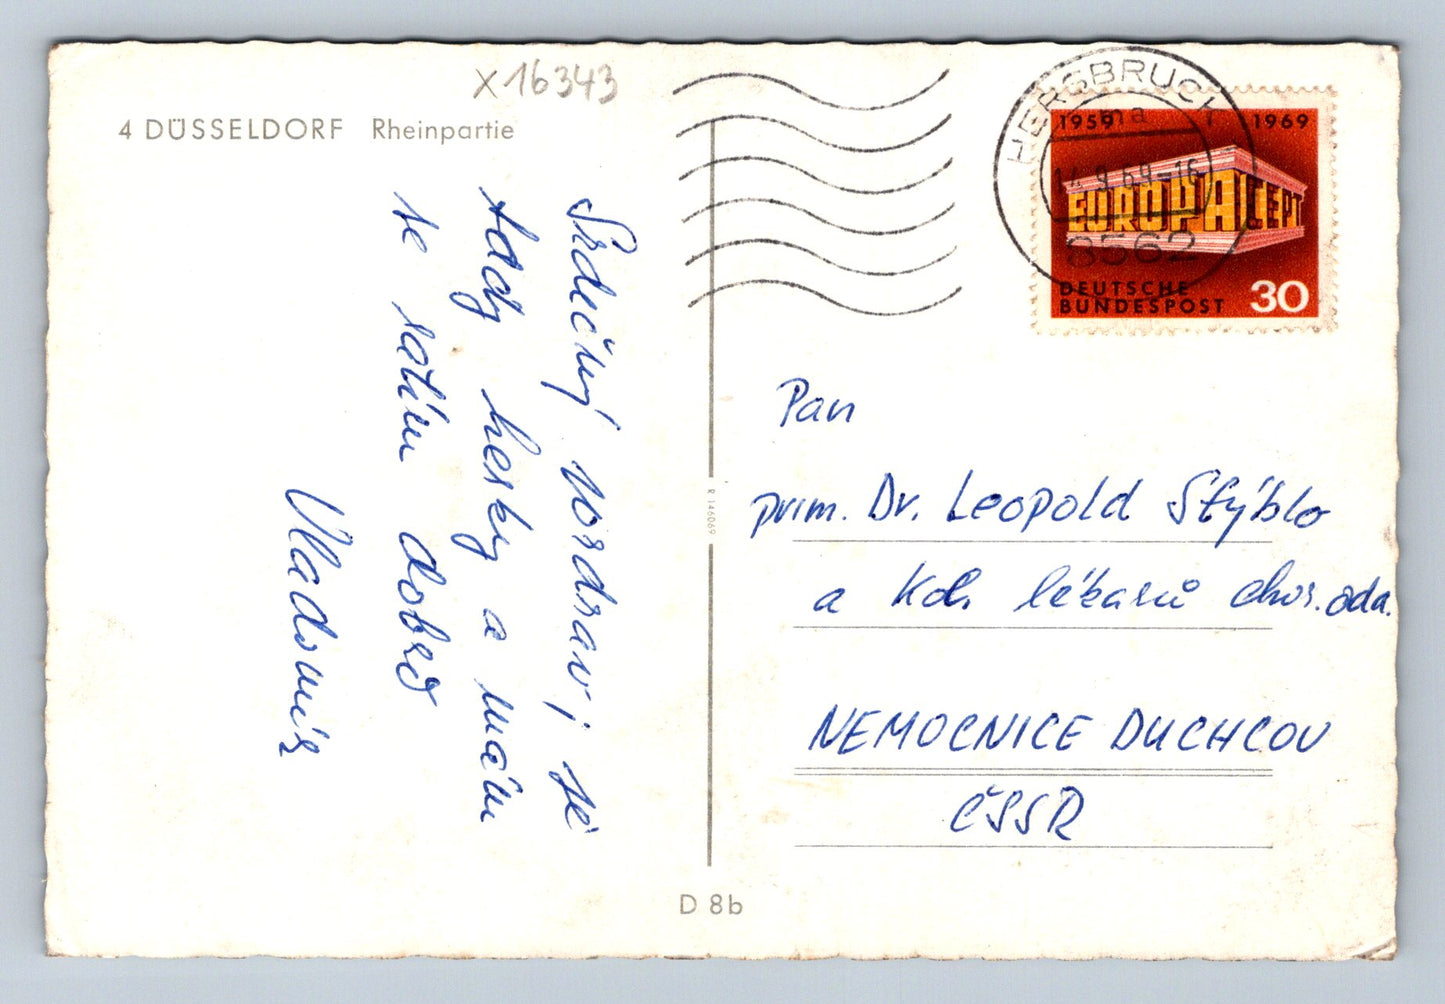 x16343
4 DÜSSELDORF Rheinpartie
Srdečný pozdrav, je
tady hezky a mám
se zatím dobře
Vladimír
R 146069
D 8b
HERSBRUCK
8562
1959 1969
EUROPA CEPT
DEUTSCHE
BUNDESPOST 30
Pan
prim. Dr. Leopold Stýblo
a kol. lékařů chir. odd.
NEMOCNICE DUCHCOV
ČSSR